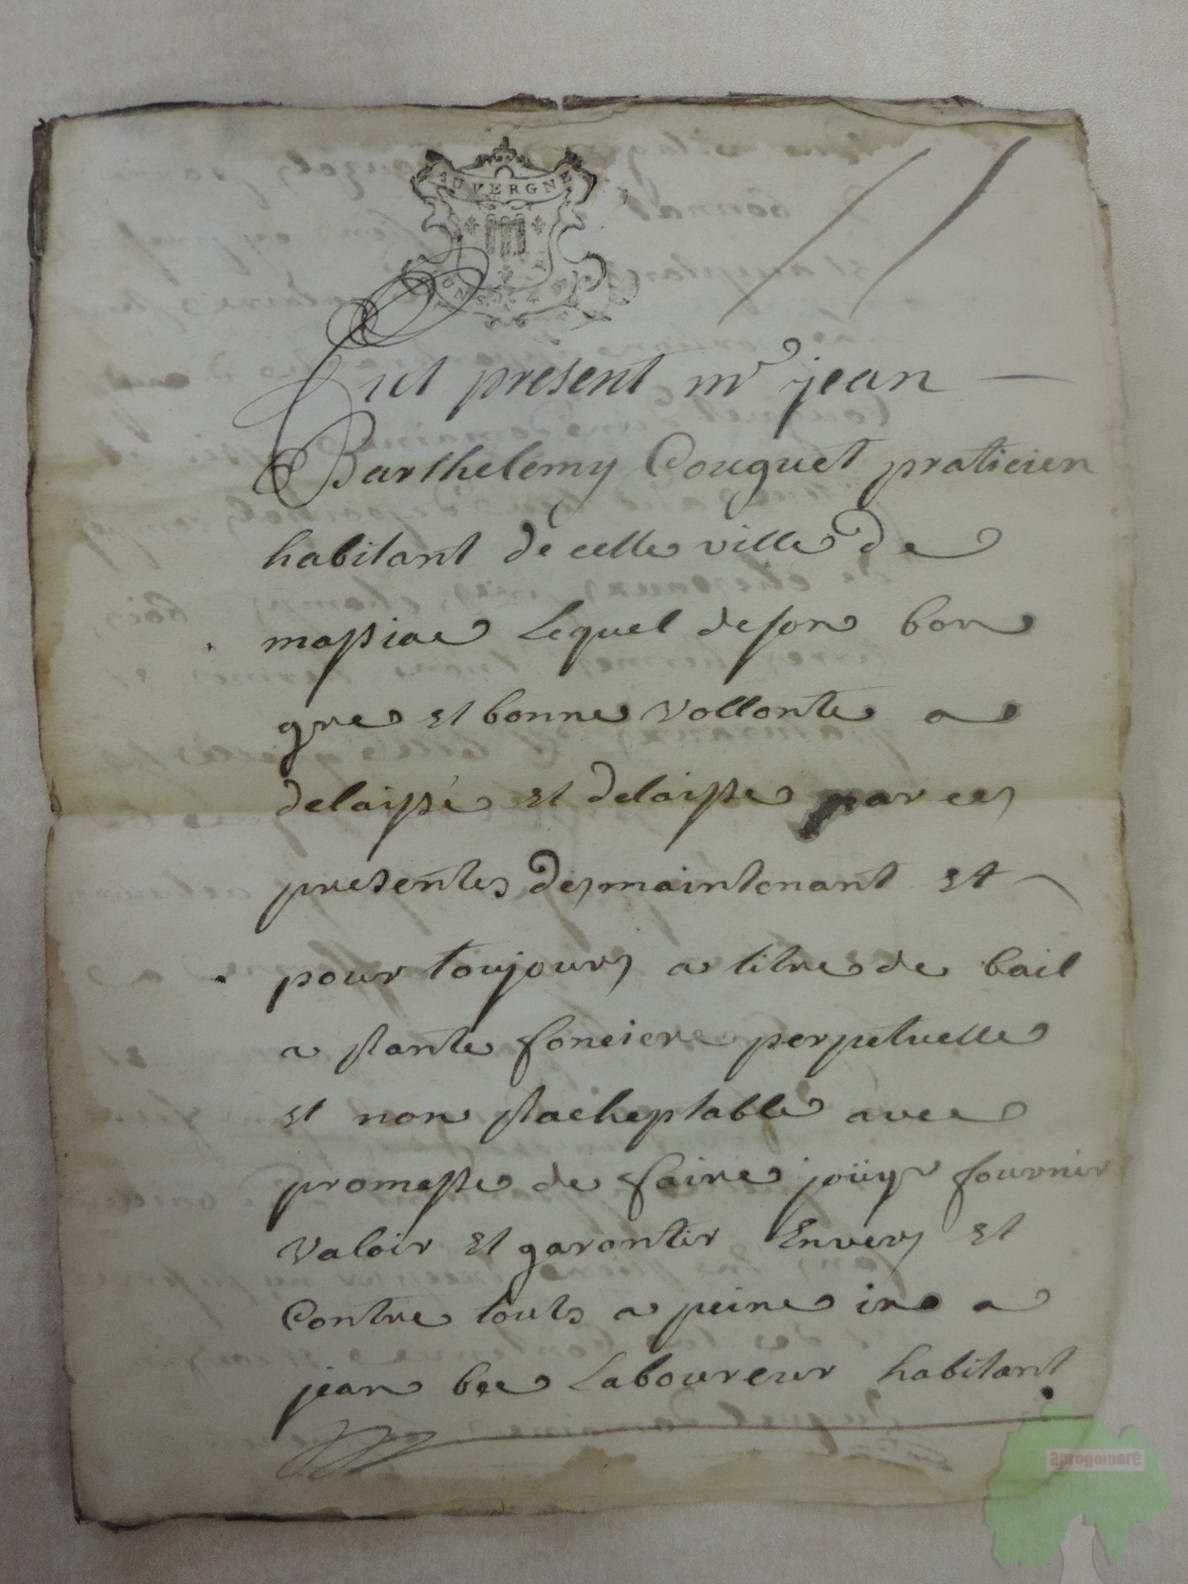 AUVERGNE
Fut present mr jean
Barthelémy Couguet praticien
habitant de cette ville de
massiac Lequel de son bon
gre et bonne vollonte a
delaissé et delaisse par ces
presentes des maintenant et
pour toujours a titre de bail
a rante fonciere perpetuelle
et non racheptable avec
promesse de faire joüyr fournir
valoir et garantir Envers et
Contre touts a peine a
jean bee Laboureur habitant